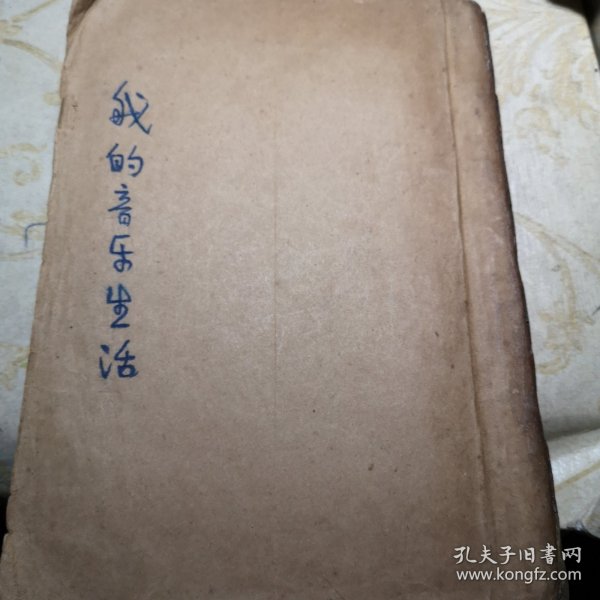 我的音乐生活
孔夫子旧書网
www.kongfz.com